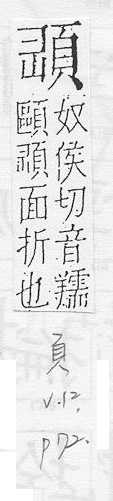 奴侯切音羺
面折也
頁
v.12,
p72.